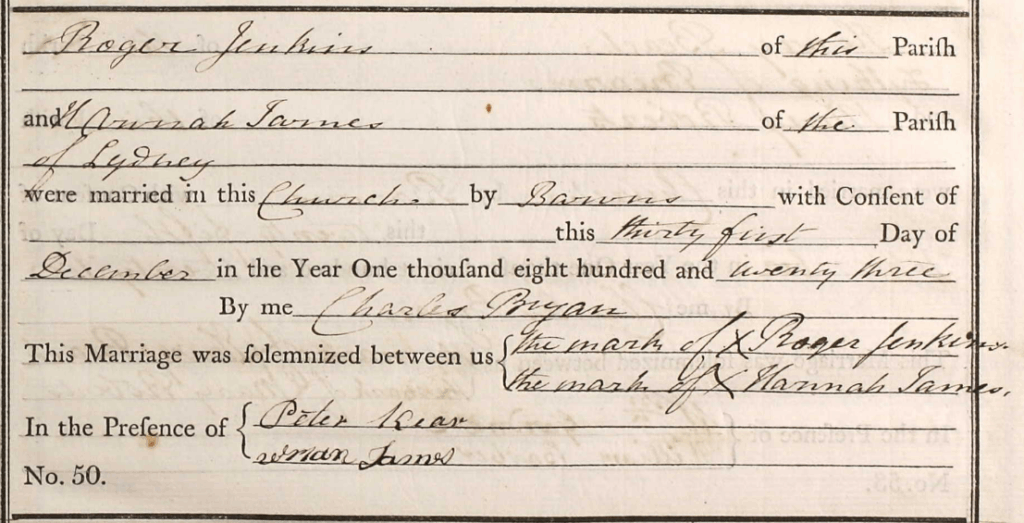 Roger Jenkins of this Pariſh
and Hannah James of the Pariſh
of Lydney
were married in this Church by Banns with Conſent of
this thirty first Day of
December in the Year One thouſand eight hundred and twenty three
By me Charles Bryan
This Marriage was ſolemnized between us { the mark of X Roger Jenkins.
the mark of X Hannah James.
In the Preſence of { Peter Kear
James
No. 50.